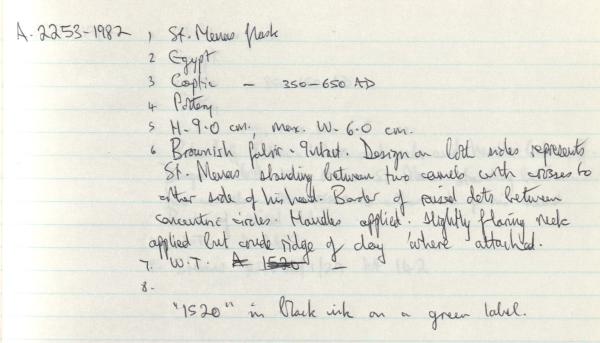 A.2253-1982 1 St. Menas flask
2 Egypt
3 Coptic - 350-650 AD
4 Pottery
5 H. 9.0 cm, max. W. 6.0 cm.
6 Brownish fabric. Intact. Design on both sides represents
St. Menas standing between two camels with crosses to
either side of his head. Border of raised dots between
concentric circles. Handles applied. Slightly flaring neck
applied but crude ridge of clay where attached.
7. W.T. A 1520 -
8.
"1520" in black ink on a green label.